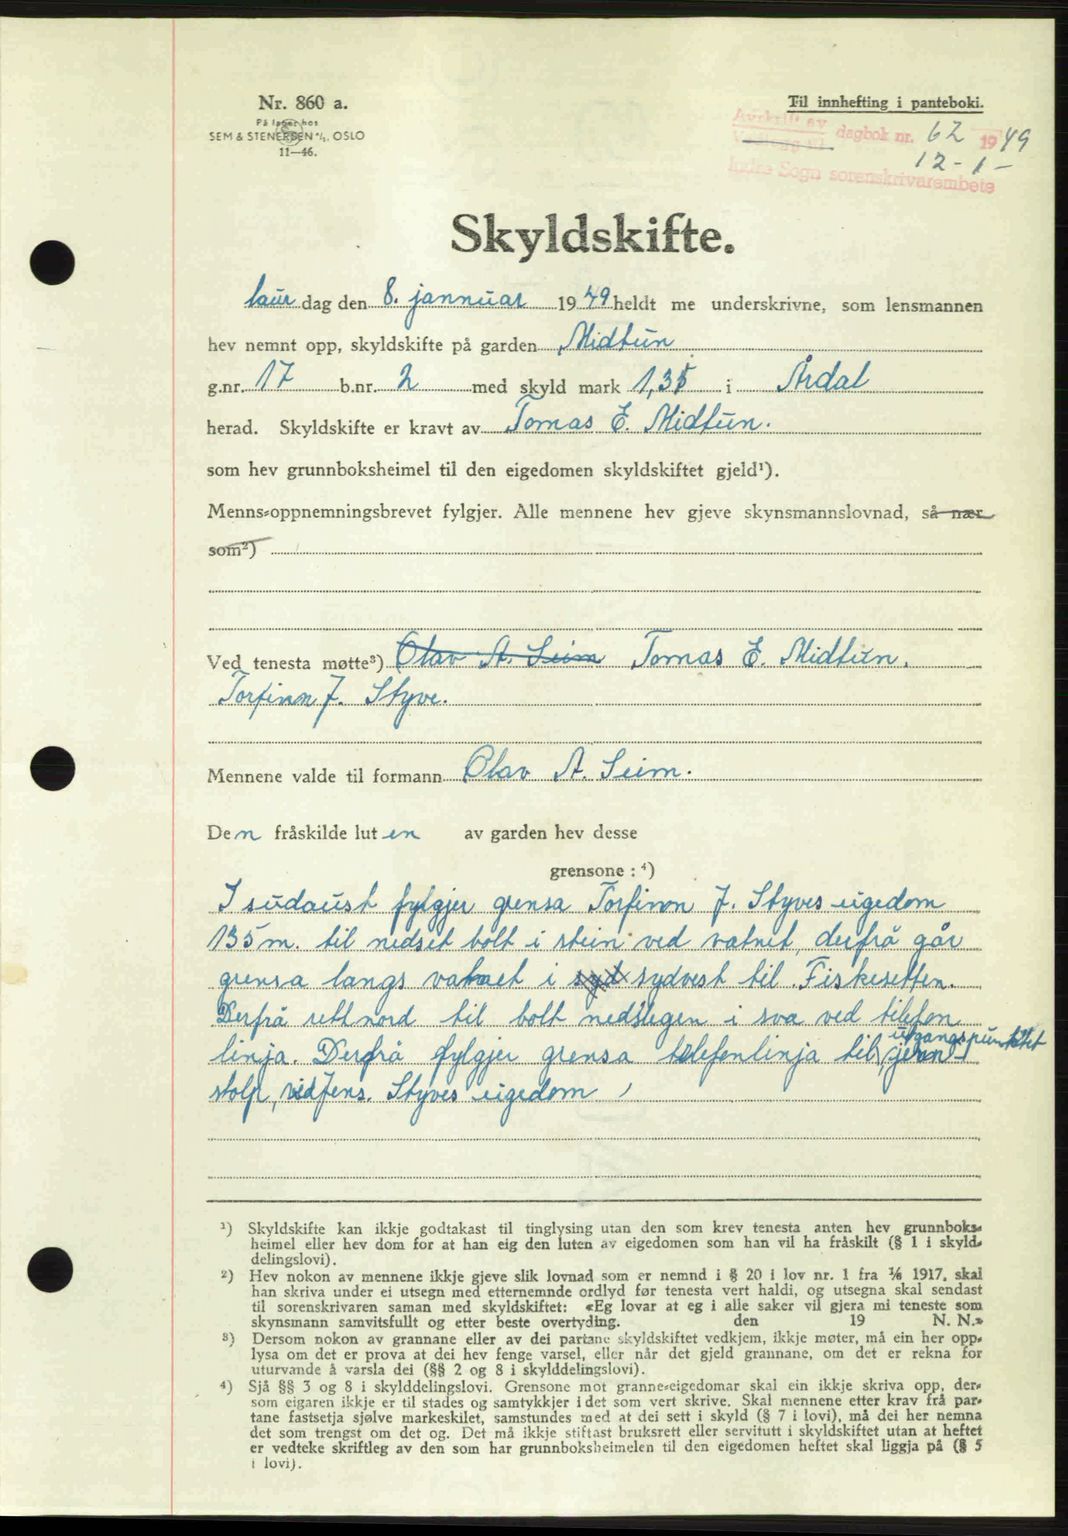 Nr. 860 a.
På lager hos
SEM & STENERSEN A/S, OSLO
11—46.
Til innhefting i panteboki.
Avskrift av
dagbok nr. 62 1949
12-1-
Indre Sogn sorenskrivarembete
Skyldskifte.
laur dag den 8. jannuar 1949 heldt me underskrivne, som lensmannen
hev nemnt opp, skyldskifte på garden Midtun
g.nr. 17 b.nr. 2 med skyld mark 1,35 i Årdal
herad. Skyldskifte er kravt av Tomas E. Midtun.
som hev grunnboksheimel til den eigedomen skyldskiftet gjeld¹).
Menns-oppnemningsbrevet fylgjer. Alle mennene hev gjeve skynsmannslovnad, så nær
som²)
Ved tenesta møtte³) Olav A. Seim Tomas E. Midtun.
Torfinn J. Styve.
Mennene valde til formann Olav A. Seim.
Den fråskilde luten av garden hev desse
grensone : ⁴)
I sudaust fylgjer grensa Torfinn J. Styves eigedom
135 m. til nedset bolt i stein ved vatnet, derfrå går
grensa langs vatnet i syd sydvest til Fiskesetten.
Derfrå rett nord til bolt nedslegen i sva ved telefon
linja. Derfrå fylgjer grensa telefonlinja til utgangspunktet jern
stolp, ved Jens. Styves eigedom
¹) Skyldskifte kan ikkje godtakast til tinglysing utan den som krev tenesta anten hev grunnboks-
heimel eller hev dom for at han eig den luten av eigedomen som han vil ha fråskilt (§ 1 i skyld-
delingslovi).
²) Hev nokon av mennene ikkje gjeve slik lovnad som er nemnd i § 20 i lov nr. 1 fra 1/6 1917, skal
han skriva under ei utsegn med etternemnde ordlyd før tenesta vert haldi, og utsegna skal sendast
til sorenskrivaren saman med skyldskiftet: «Eg lovar at eg i alle saker vil gjera mi teneste som
skynsmann samvitsfullt og etter beste overtyding. den 19 N. N.»
³) Dersom nokon av grannane eller av dei partane skyldskiftet vedkjem, ikkje møter, må ein her opp-
lysa om det er prova at dei hev fenge varsel, eller når det gjeld grannane, om det er rekna for
uturvande å varsla dei (§§ 2 og 8 i skylddelingslovi).
⁴) Sjå §§ 3 og 8 i skylddelingslovi. Grensone mot granne-eigedomar skal ein ikkje skriva opp, der-
som eigaren ikkje er til stades og samtykkjer i det som vert skrive. Skal mennene etter krav frå par-
tane fastsetja sjølve markeskilet, samstundes med at dei sett i skyld (§ 7 i lovi), må dei her nemna
det som trengst om det og. Det må ikkje stiftast bruksrett eller servitutt i skyldskiftet utan at heftet
er vedteke skriftleg av den som har grunnboksheimelen til den eigedomen heftet skal liggja på (§ 5
i lovi).